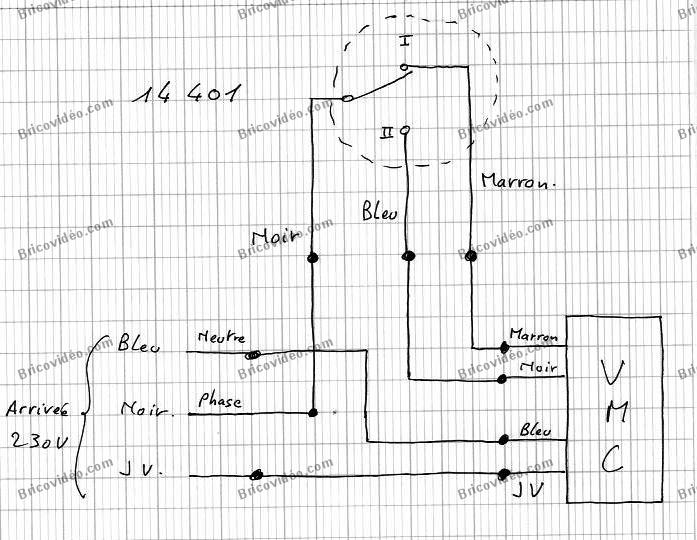 I
14 401
II
Marron.
Bleu
Noir
Bleu
Neutre
Marron
Noir
V
M
C
Arrivée
230V
Noir.
Phase
Bleu
JV.
JV
Bricovidéo.com